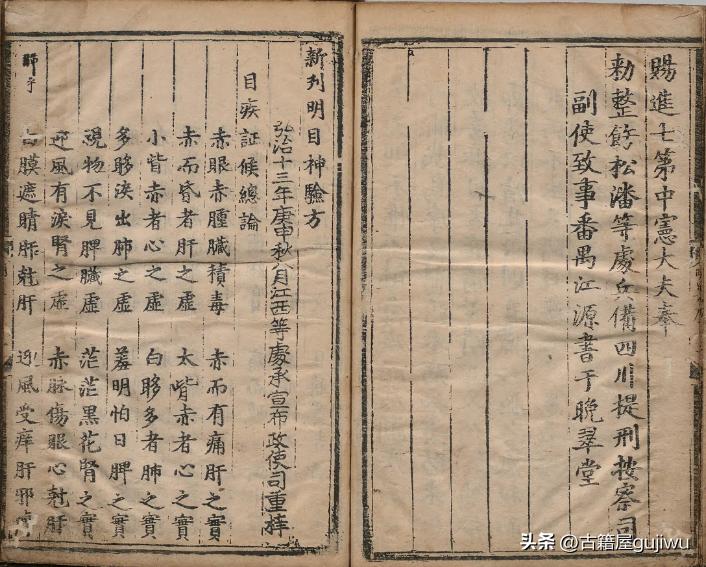 賜進士第中憲大夫奉
勑整飭松潘等處兵備四川提刑按察司
副使致事番禺江源書于晚翠堂
新刋明目神驗方
弘治十三年庚申秋八月江西等處承宣布政使司重梓
目疾証候總論
赤眼赤腫臟積毒 赤而有痛肝之實
赤而昏者肝之虛 大眥赤者心之實
小眥赤者心之虛 白眵多者肺之實
多眵淚出肺之虛 羞明怕日脾之實
視物不見脾臟虛 茫茫黑花腎之實
迎風有淚腎之虛 赤脉傷眼心尅肝
白膜遮睛肺尅肝 迎風受痒肝邪
头条 @古籍屋gujiwu